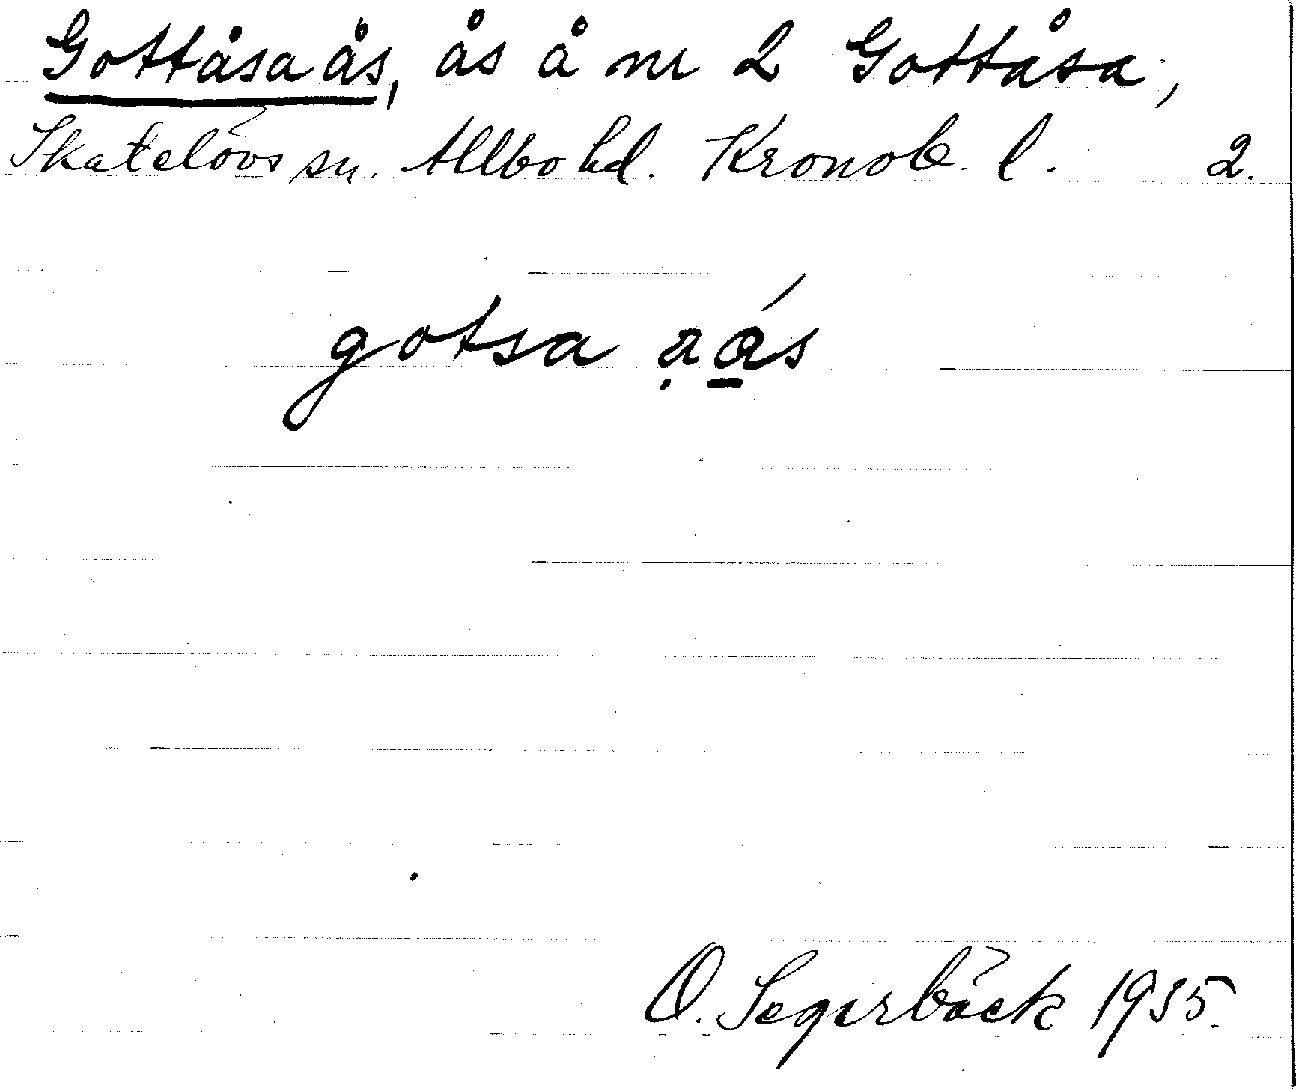 Gottåsa ås, ås å nr 2 Gottåsa,
Skatelövs sn. Allbo hd. Kronob. l. 2.
gotsa
O. Segerbäck 1935.